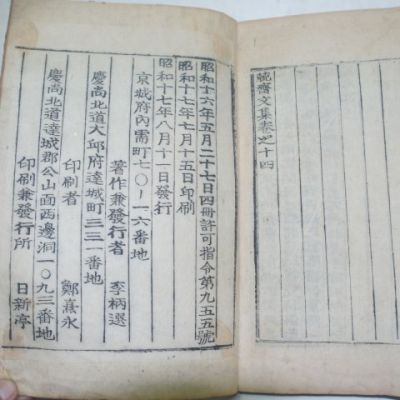 晩齋文集卷之十四
昭和十六年五月二十七日四冊許可指令第九五五號
昭和十七年七月十五日印刷
昭和十七年八月十一日發行
京城府內需町七〇ノ一六番地
著作兼發行者 李柄選
慶尚北道大邱府達城町三三一番地
印刷者 鄭熹永
慶尚北道達城郡公山面西邊洞一〇九三番地
印刷兼發行所 日新亭